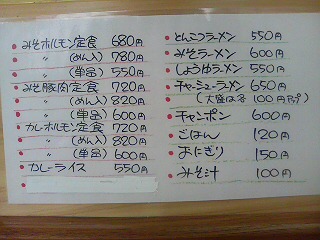 みそホルモン定食 680円
〃 (めん入) 780円
〃 (単品) 550円
みそ豚肉定食 720円
〃 (めん入) 820円
〃 (単品) 600円
カレーホルモン定食 720円
〃 (めん入) 820円
〃 (単品) 600円
カレーライス 550円
とんこつラーメン 550円
みそラーメン 600円
しょうゆラーメン 550円
チャーシューラーメン 650円
(大盛は各100円アップ)
チャンポン 600円
ごはん 120円
おにぎり 150円
みそ汁 100円